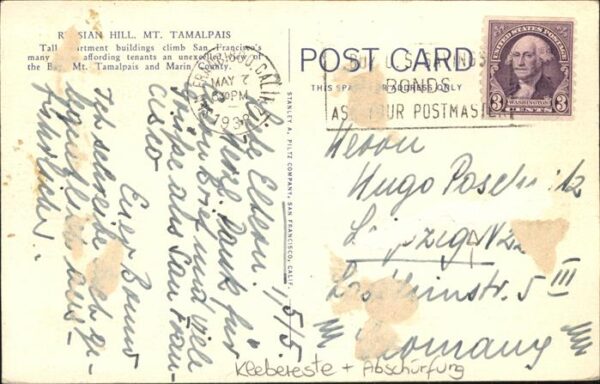 RUSSIAN HILL, MT. TAMALPAIS
Tall apartment buildings climb San Francisco's
many affording tenants an unexcelled view of
the Bay, Mt. Tamalpais and Marin County.
POST CARD
THIS SPACE FOR ADDRESS ONLY
SAN FRANCISCO, CALIF.
MAY 7
PM
1938
BUY U.S. SAVINGS
BONDS
ASK YOUR POSTMASTER
UNITED STATES POSTAGE
WASHINGTON
3 CENTS 3
STANLEY A. PILTZ COMPANY, SAN FRANCISCO, CALIF.
5/5.
Eltern!
Herzl. Dank für
Brief und viele
Grüße aus San Fran-
cisco.
Ich schreibe Euch ge-
legentlich aus-
führlicher.
Euer
Herrn
Hugo
Leipzig N22
5 III
Germany
Klebereste + Abschürfung